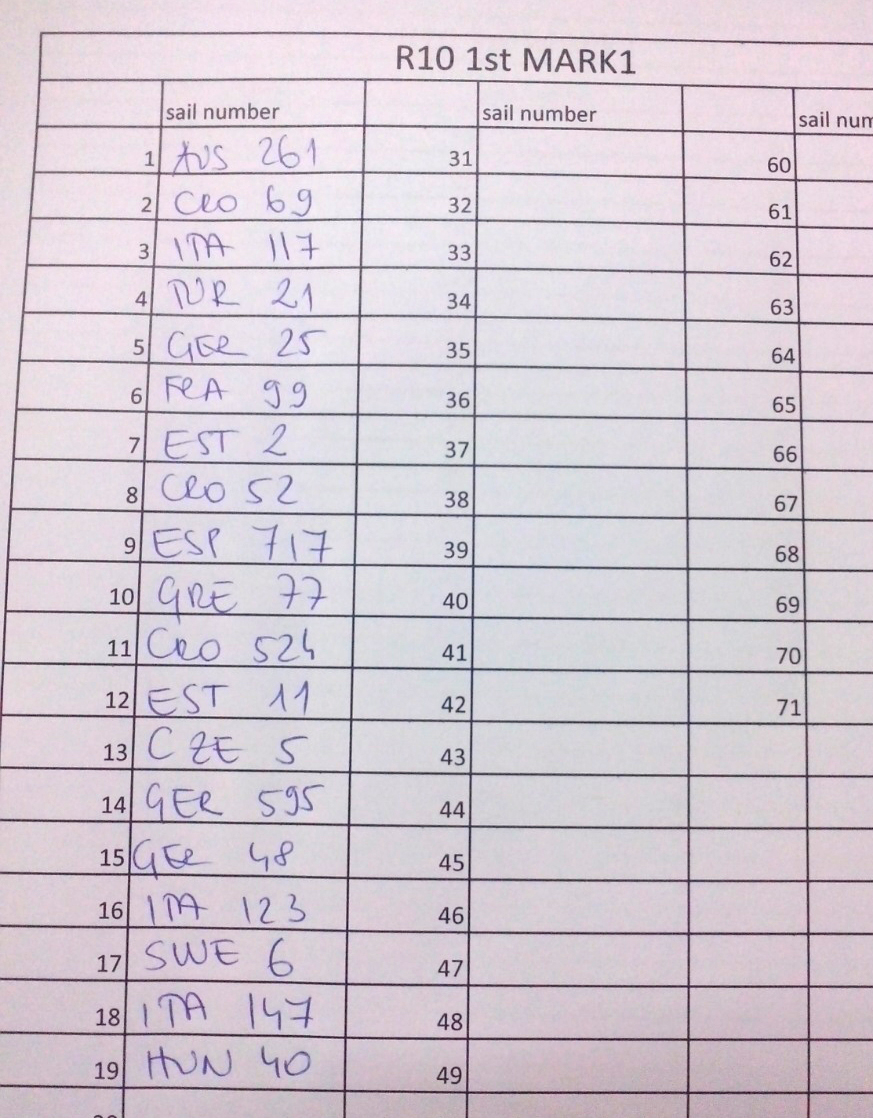 R10 1st MARK1
sail number sail number sail num
1 AUS 261 31 60
2 CRO 69 32 61
3 ITA 117 33 62
4 TUR 21 34 63
5 GER 25 35 64
6 FRA 99 36 65
7 EST 2 37 66
8 CRO 52 38 67
9 ESP 717 39 68
10 GRE 77 40 69
11 CRO 524 41 70
12 EST 11 42 71
13 CZE 5 43
14 GER 595 44
15 GER 48 45
16 ITA 123 46
17 SWE 6 47
18 ITA 147 48
19 HUN 40 49